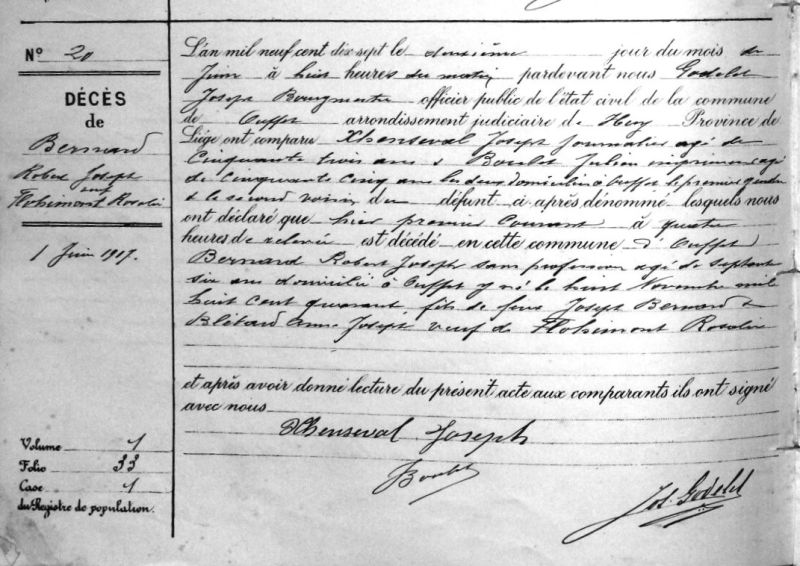 N° 20
DÉCÈS
de
Bernard
Robert Joseph
veuf
Flohimont Rosalie
1 Juin 1917.
Volume 1
Folio 33
Case 1
du Registre de population.
L'an mil neuf cent dix sept le deuxième jour du mois de
Juin à huit heures du matin pardevant nous Godelet
Joseph Bourgmestre officier public de l'état civil de la commune
de Ouffet arrondissement judiciaire de Huy Province de
Liége ont comparu Xhenseval Joseph Journalier agé de
cinquante trois ans & Boulet Julien imprimeur agé
de cinquante cinq ans les deux domiciliés à Ouffet le premier gendre
& le second voisin du défunt ci après dénommé lesquels nous
ont déclaré que hier premier courant à quatre
heures de relevée est décédé en cette commune d'Ouffet
Bernard Robert Joseph sans profession agé de septante
six ans domicilié à Ouffet y né le huit Novembre mil
huit cent quarante fils de feus Joseph Bernard &
Blétard Anne Joseph veuf de Flohimont Rosalie
et après avoir donné lecture du présent acte aux comparants ils ont signé
avec nous
Xhenseval Joseph
JBoulet
Jos. Godelet